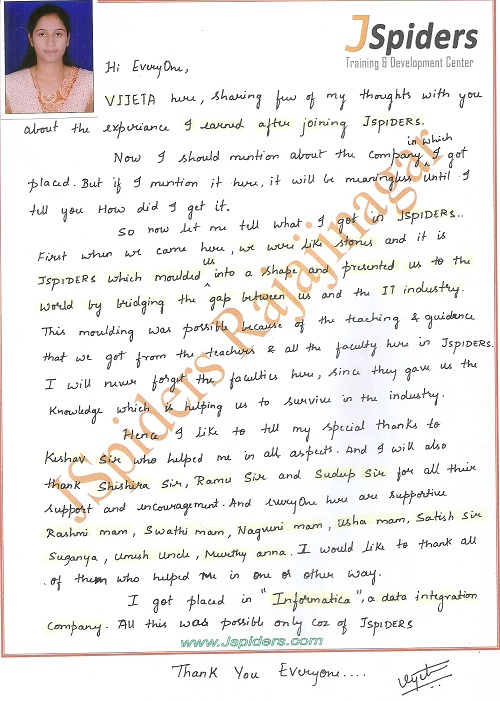 JSpiders
Training & Development Center
Hi EveryOne,
VIJETA here, sharing few of my thoughts with you
about the experience I earned after joining JSPIDERS.
Now I should mention about the company in which I got
placed. But if I mention it here, it will be meaningless until I
tell you How did I get it.
So now let me tell what I got in JSPIDERS..
First when we came here, we were like stones and it is
JSPIDERS which moulded us into a shape and presented us to the
world by bridging the gap between us and the IT industry.
This moulding was possible because of the teaching & guidence
that we got from the teachers & all the faculty here in JSPIDERS.
I will never forget the faculties here, since they gave us the
Knowledge which is helping us to survive in the industry.
Hence I like to tell my special thanks to
Keshav Sir who helped me in all aspects. And I will also
thank Shishira Sir, Ramu Sir and Sudeep Sir for all their
support and encouragement. And everyone here are supportive
Rashmi mam, Swathi mam, Nagveni mam, Usha mam, Satish Sir
Suganya, Umesh Uncle, Murthy anna. I would like to thank all
of them who helped me in one or other way.
I got placed in "Informatica", a data integration
company. All this was possible only coz of JSPIDERS
www.Jspiders.com
Thank You Everyone....
JSpiders Rajajinagar